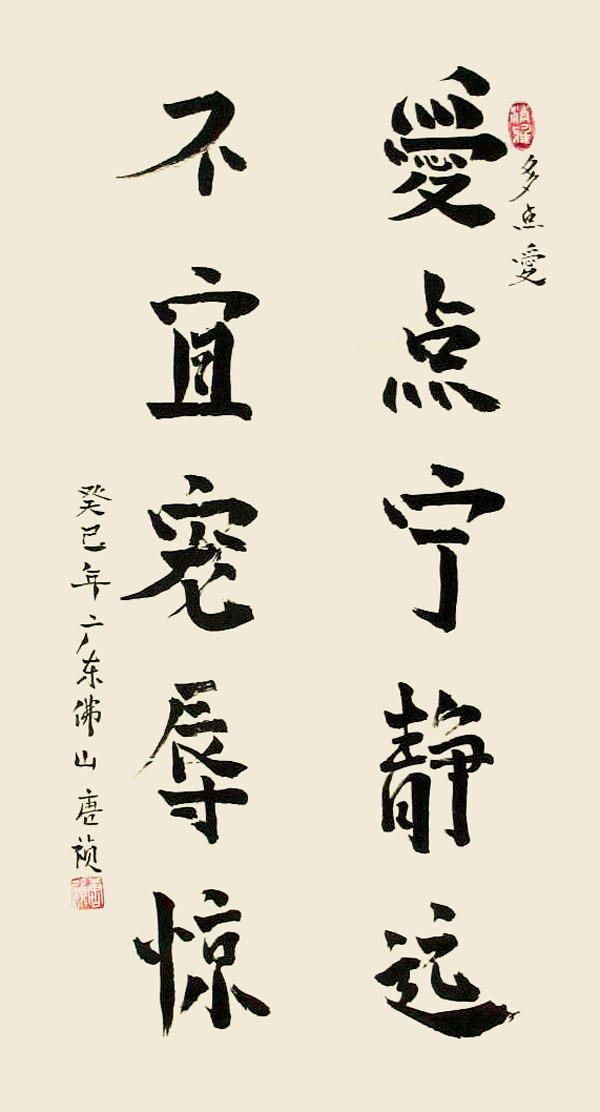 多点愛
愛点宁静远
不宜宠辱惊
癸巳年广东佛山唐祯